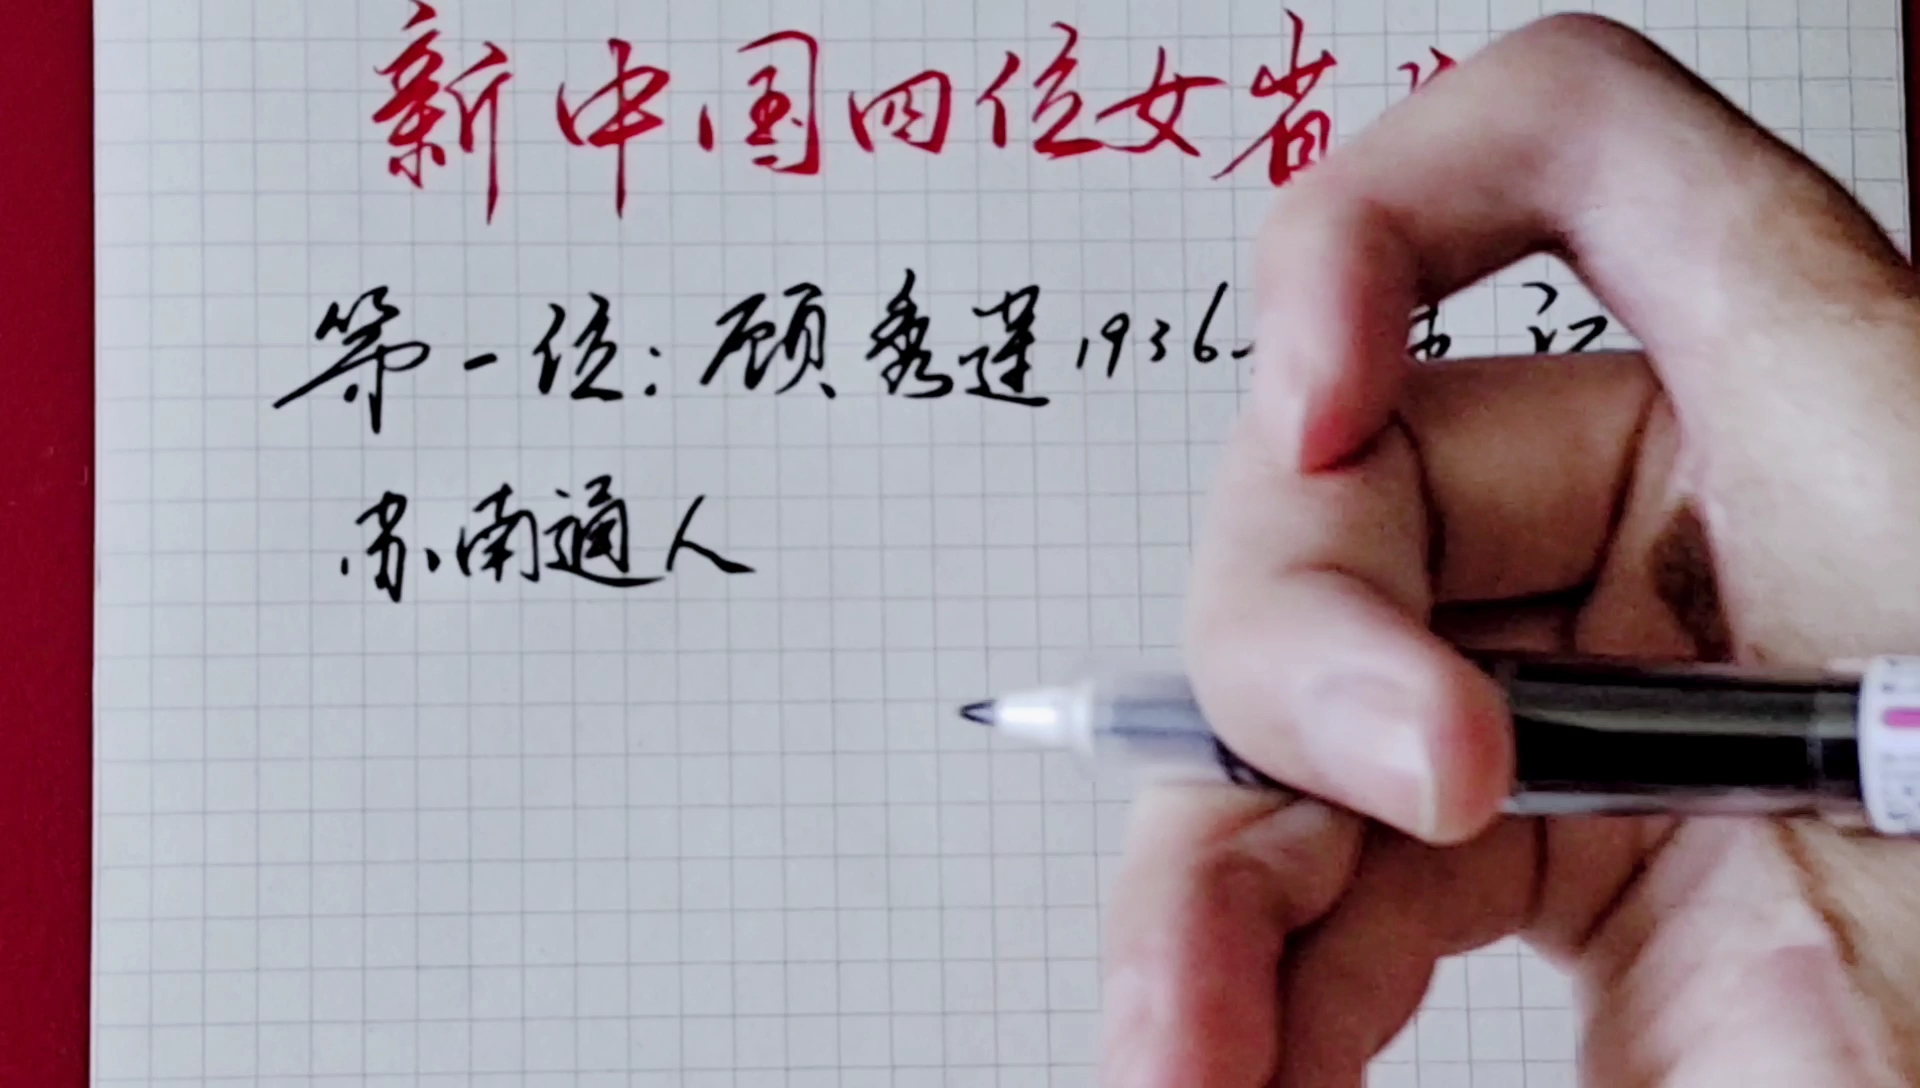 新中国四位女省
第一位:顾秀莲1936
苏南通人